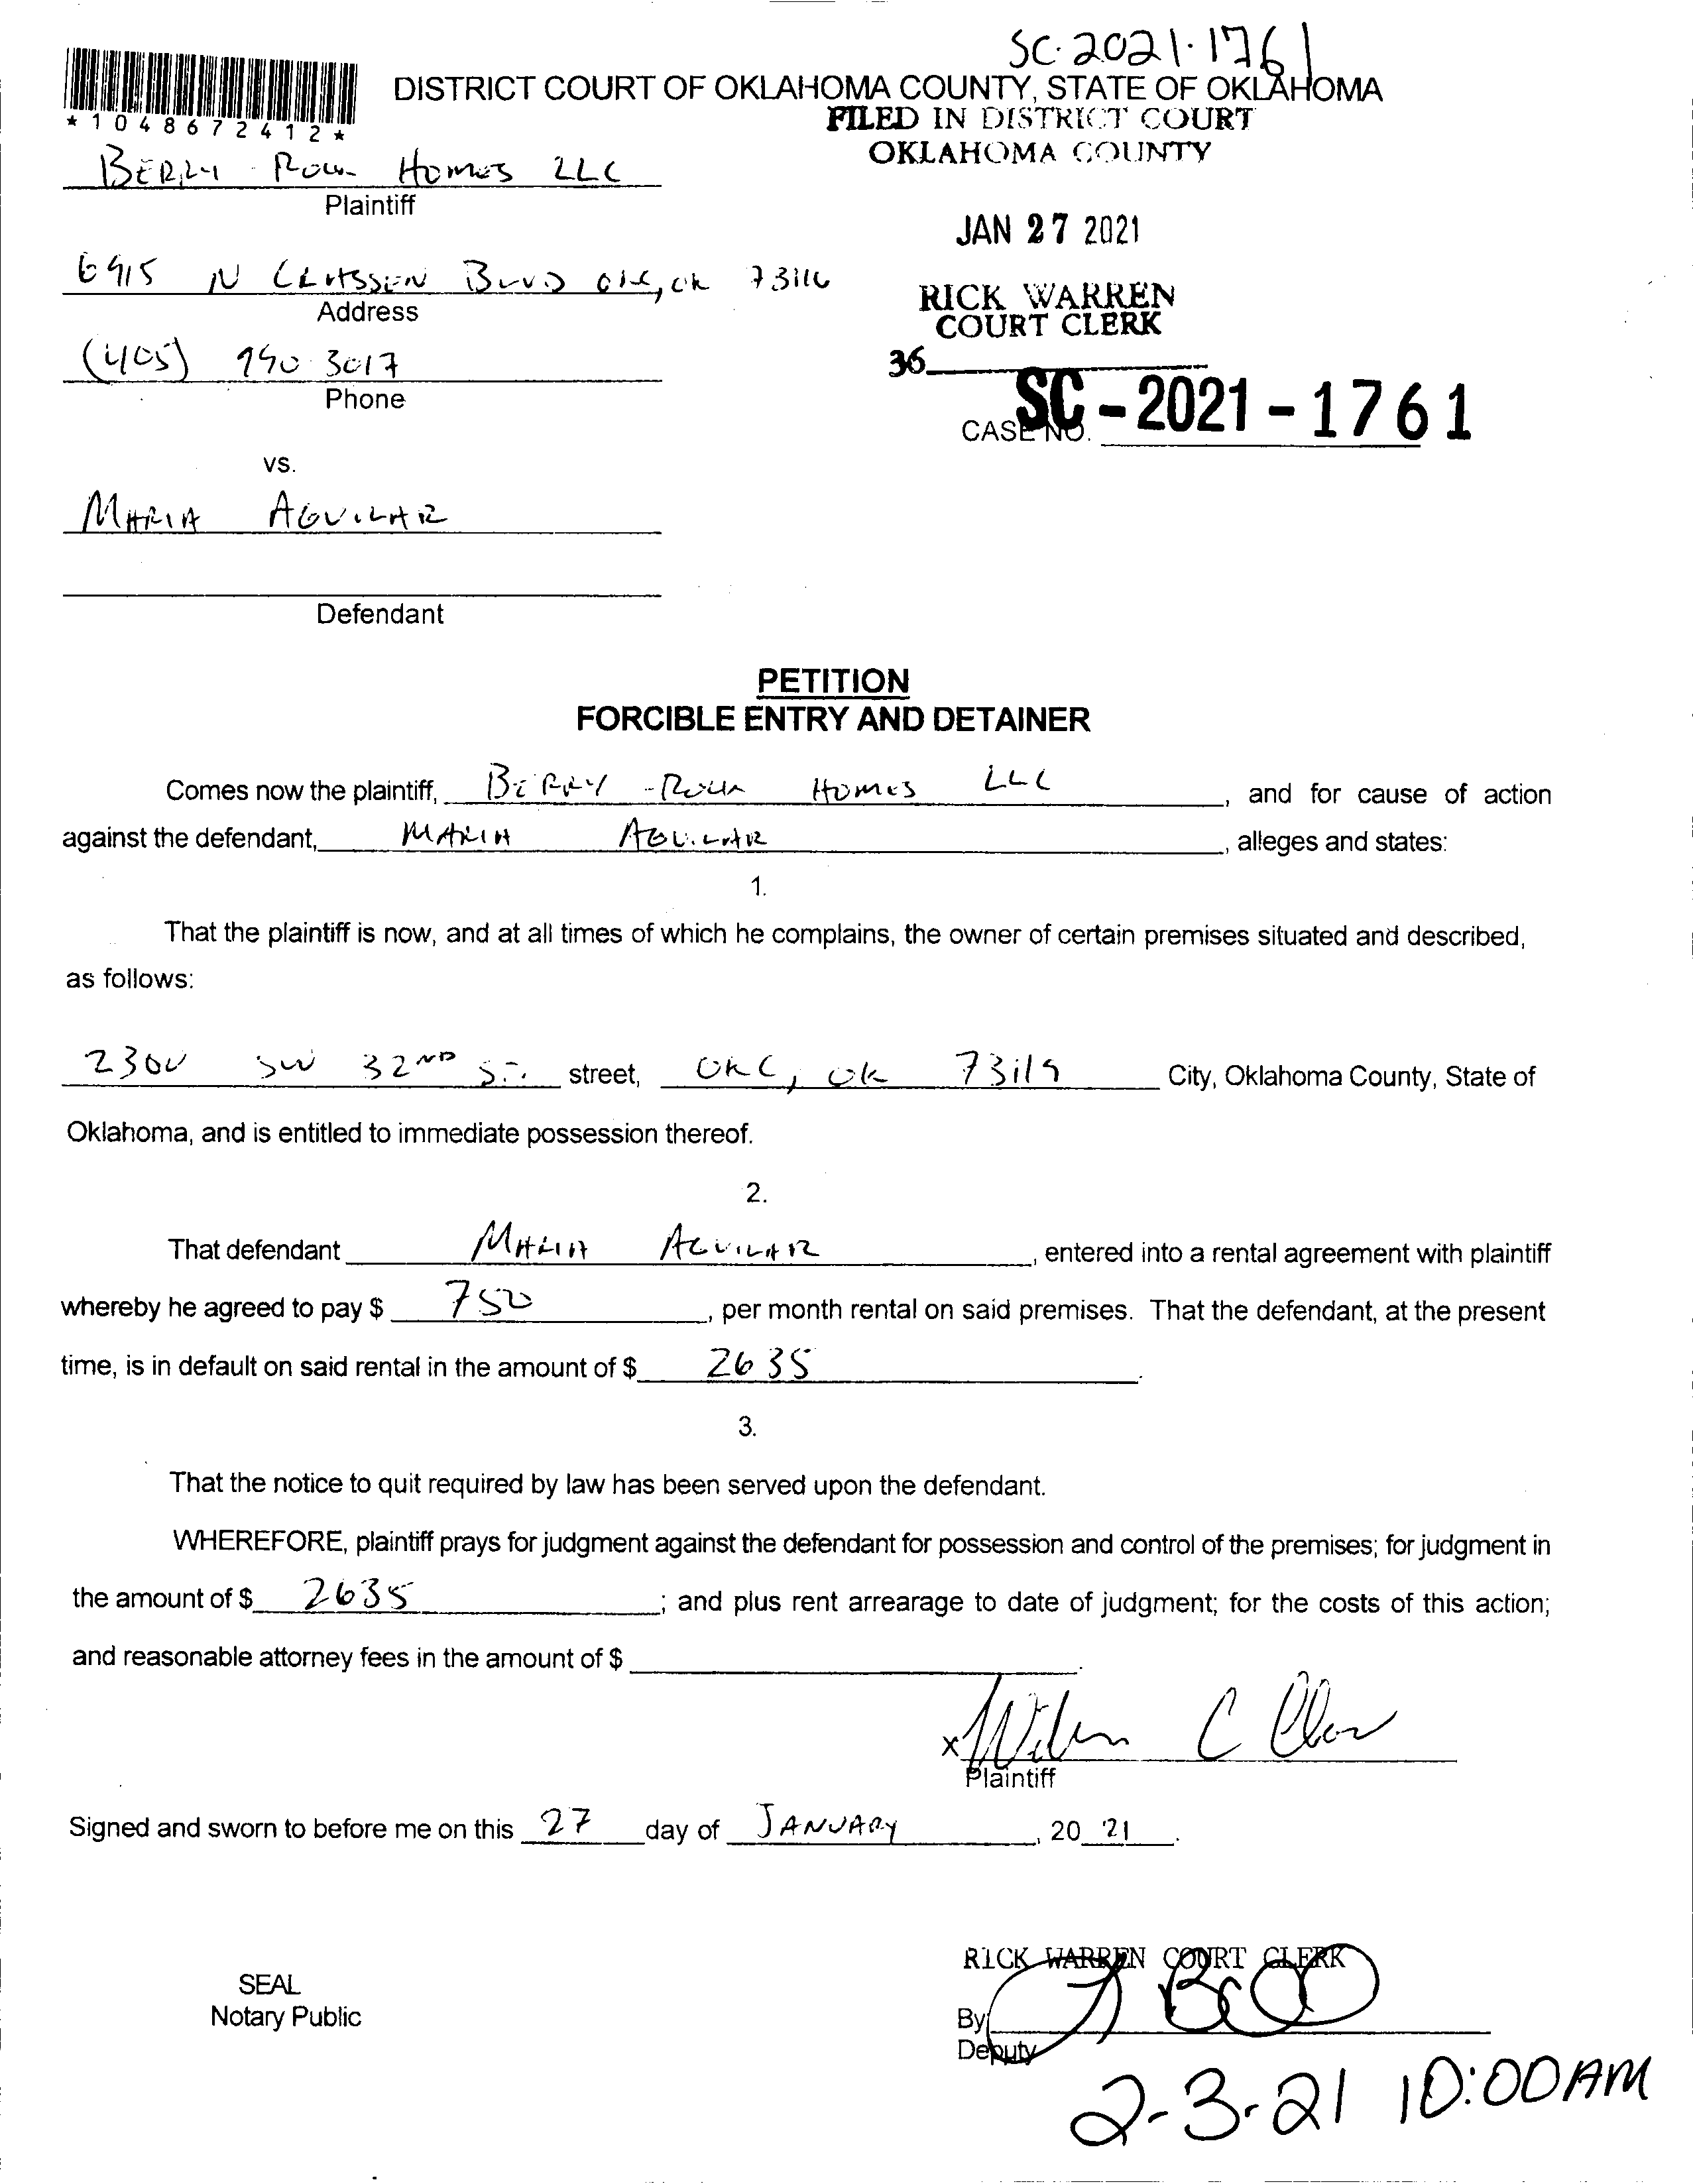 SC-2021-1761
DISTRICT COURT OF OKLAHOMA COUNTY, STATE OF OKLAHOMA
FILED IN DISTRICT COURT
OKLAHOMA COUNTY
*1048672412*
BERRY - ROCK HOMES LLC
Plaintiff
JAN 27 2021
6915 N CLASSEN BLVD OKC, OK 73116
Address
RICK WARREN
COURT CLERK
(405) 990-3017
36
Phone
CASE NO. SC-2021-1761
vs.
MARIA AGUILAR
Defendant
PETITION
FORCIBLE ENTRY AND DETAINER
Comes now the plaintiff, BERRY - ROCK HOMES LLC, and for cause of action
against the defendant, MARIA AGUILAR, alleges and states:
1.
That the plaintiff is now, and at all times of which he complains, the owner of certain premises situated and described,
as follows:
2300 SW 32ND ST. street, OKC, OK 73119 City, Oklahoma County, State of
Oklahoma, and is entitled to immediate possession thereof.
2.
That defendant MARIA AGUILAR, entered into a rental agreement with plaintiff
whereby he agreed to pay $ 750, per month rental on said premises. That the defendant, at the present
time, is in default on said rental in the amount of $ 2635.
3.
That the notice to quit required by law has been served upon the defendant.
WHEREFORE, plaintiff prays for judgment against the defendant for possession and control of the premises; for judgment in
the amount of $ 2635; and plus rent arrearage to date of judgment; for the costs of this action;
and reasonable attorney fees in the amount of $ .
x
Plaintiff
Signed and sworn to before me on this 27 day of JANUARY, 20 21.
RICK WARREN COURT CLERK
SEAL
Notary Public
By
Deputy
2-3-21 10:00AM